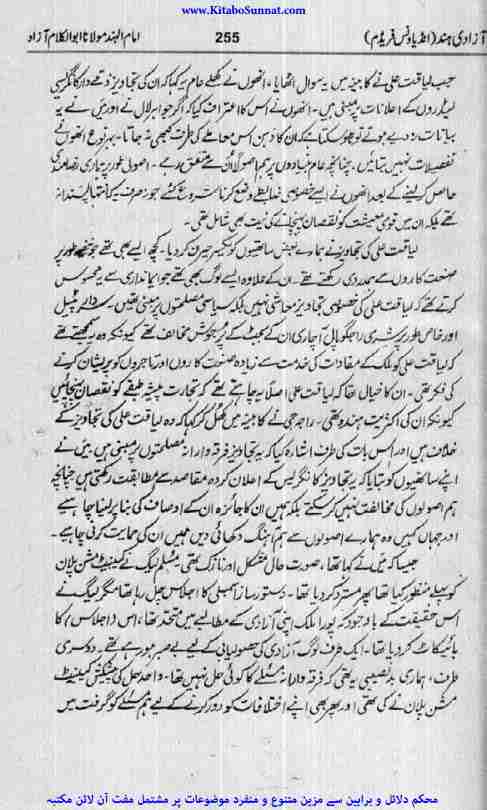 www.KitaboSunnat.com
آزادی ہند (انڈیا ونس فریڈم) 255 امام الہند مولانا ابوالکلام آزاد
جب لیاقت علی نے کابینہ میں یہ سوال اٹھایا، انھوں نے کھلے عام یہ کہا کہ ان کی تجاویز ذمے دار کانگریسی
لیڈروں کے اعلانات پر مبنی ہیں۔ انھوں نے اس کا اعتراف کیا کہ اگر جواہر لال نے اور میں نے یہ
بیانات نہ دیے ہوتے تو ہو سکتا ہے کہ ان کا ذہن اس معاملے کی طرف کبھی نہ جاتا۔ بہر نوع انھوں نے
تفصیلات نہیں بتائیں، چنانچہ عام بنیادوں پر ہم اصولاً ان سے متفق رہے۔ اصولی طور پر ہماری رضامندی
حاصل کر لینے کے بعد انھوں نے ایسے خصوصی ضابطے وضع کرنا شروع کئے جو نہ صرف یہ کہ انتہا پسندانہ
تھے بلکہ ان میں قومی معیشت کو نقصان پہنچانے کی نیت بھی شامل تھی۔
لیاقت علی کی تجاویز نے ہمارے بعض ساتھیوں کو یکسر حیران کر دیا۔ کچھ ایسے بھی تھے جو خفیہ طور پر
صنعت کاروں سے ہمدردی رکھتے تھے۔ ان کے علاوہ ایسے لوگ بھی تھے جو ایمانداری سے یہ محسوس
کرتے تھے کہ لیاقت علی کی خصوصی تجاویز معاشی نہیں بلکہ سیاسی مصلحتوں پر مبنی تھیں۔ سردار پٹیل
اور خاص طور پر شری راجگوپال آچاری ان کے بجٹ کے پرجوش مخالف تھے کیونکہ وہ یہ سمجھتے تھے
کہ لیاقت علی کو ملک کے مفادات کی خدمت سے زیادہ صنعت کاروں اور تاجروں کو پریشان کرنے
کی فکر تھی۔ ان کا خیال تھا کہ لیاقت علی اصلاً یہ چاہتے تھے کہ تجارت پیشہ طبقے کو نقصان پہنچائیں
کیونکہ ان کی اکثریت ہندو تھی۔ راجہ جی نے کابینہ میں کھل کر کہا کہ وہ لیاقت علی کی تجاویز کے
خلاف ہیں اور اس بات کی طرف اشارہ کیا کہ یہ تجاویز فرقہ وارانہ مصلحتوں پر مبنی ہیں۔ میں نے
اپنے ساتھیوں کو بتایا کہ یہ تجاویز کانگریس کے اعلان کردہ مقاصد سے مطابقت رکھتی ہیں چنانچہ
ہم اصولوں کی مخالفت نہیں کر سکتے بلکہ ہمیں ان کا جائزہ ان کے اوصاف کی بنا پر لینا چاہیے
اور جہاں کہیں وہ ہمارے اصولوں سے ہم آہنگ دکھائی دیں ہمیں ان کی حمایت کرنی چاہیے۔
جیسا کہ میں نے کہا تھا، صورت حال مشکل اور نازک تھی مسلم لیگ نے کیبینٹ مشن پلان
کو پہلے منظور کیا تھا پھر مسترد کر دیا تھا۔ دستور ساز اسمبلی کا اجلاس چل رہا تھا مگر لیگ نے
اس حقیقت کے باوجود کہ پورا ملک اپنی آزادی کے مطالبے میں متحد تھا، اس (اجلاس) کا
بائیکاٹ کر دیا تھا۔ ایک طرف لوگ آزادی کی حصولیابی کے لیے بے صبر ہو رہے تھے۔ دوسری
طرف، ہماری بدنصیبی یہ تھی کہ فرقہ وارانہ مسئلے کا کوئی حل نہیں تھا۔ واحد حل کی پیشکش کیبینٹ
مشن پلان نے کی تھی اور پھر بھی اپنے اختلافات کو دور کرنے کے لیے ہم مسئلے کو گرفت میں
محکم دلائل و براہین سے مزین متنوع و منفرد موضوعات پر مشتمل مفت آن لائن مکتبہ